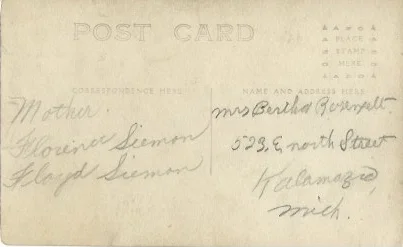 POST CARD
PLACE
STAMP
HERE
CORRESPONDENCE HERE
NAME AND ADDRESS HERE
Mother.
Florence Siemon
Floyd Siemon
Mrs Bertha
523, E north Street
Kalamazoo,
Mich.